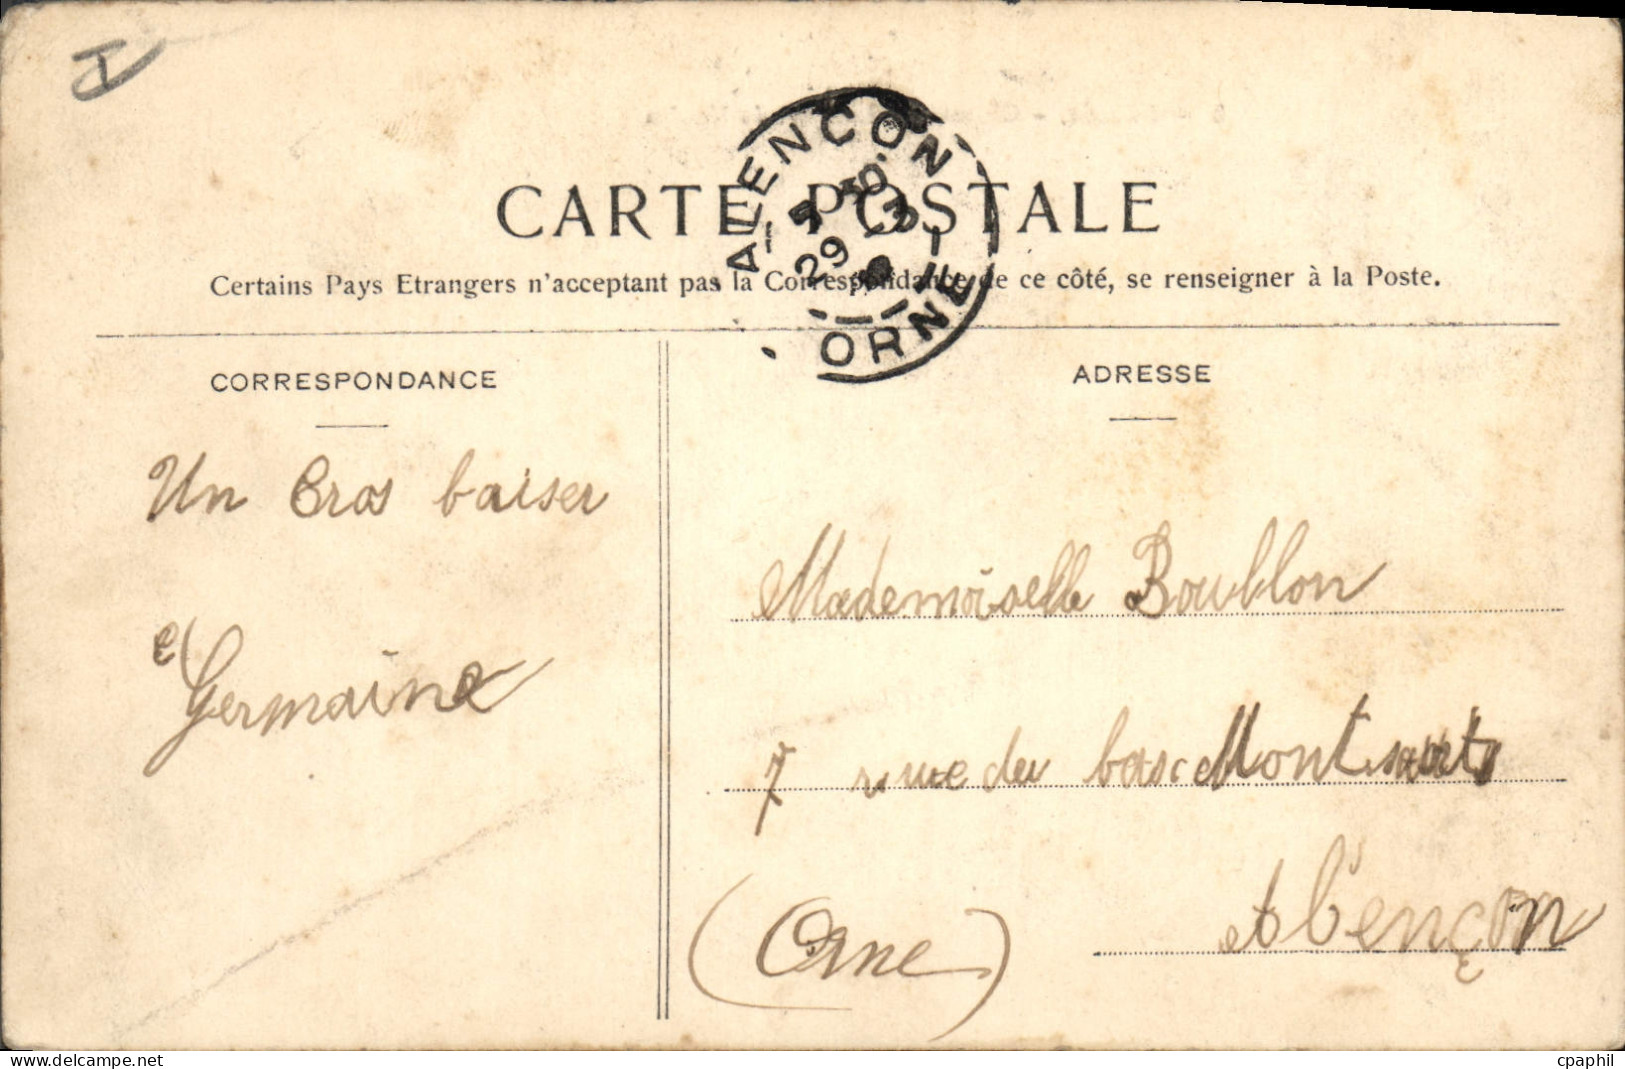 ALENÇON
7 30
29
ORNE
CARTE POSTALE
Certains Pays Etrangers n'acceptant pas la Correspondance de ce côté, se renseigner à la Poste.
CORRESPONDANCE
Un Gros baiser
Germaine
ADRESSE
Mademoiselle Boublon
7 rue du bas Montsorts
Alençon
(Orne)
delcampe.net
cpaphil